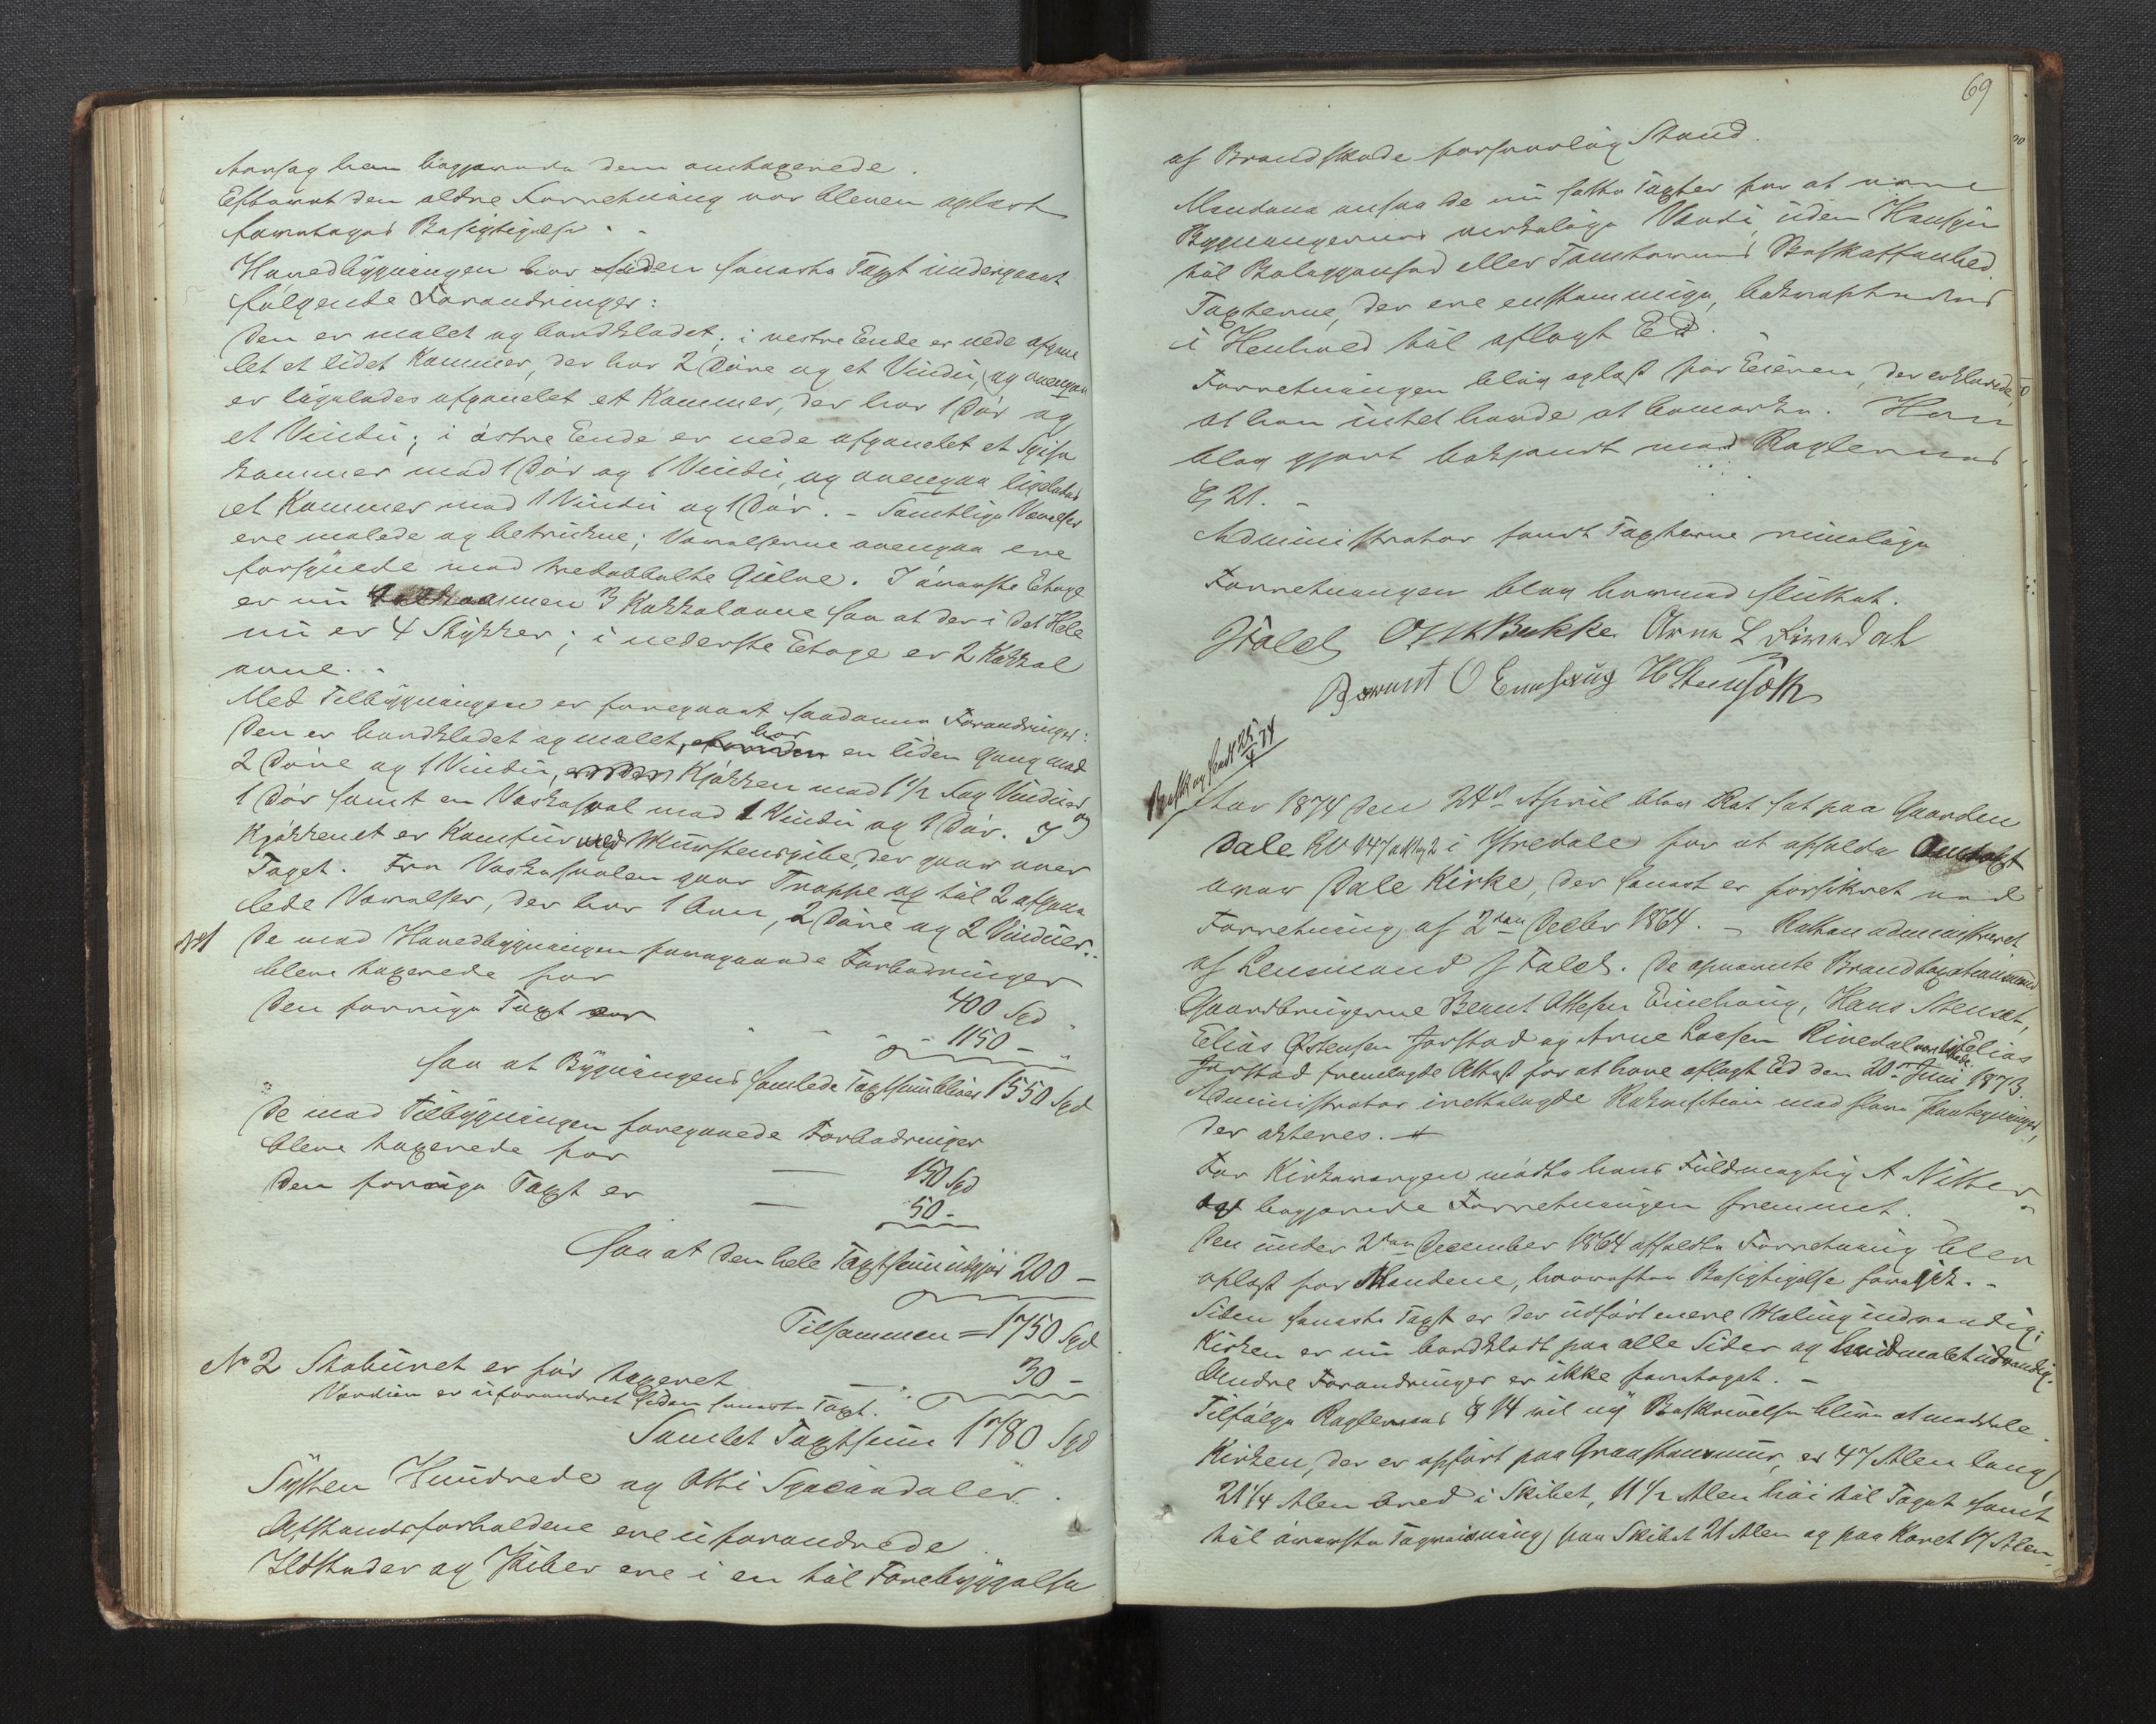 Aarsag han begjærede dem omtaxerede.
Efterat den ældre Forretning var bleven oplæst
foretoges Besigtigelse.
Hovedbygningen har siden seneste Taxt undergaaet
følgende Forandringer:
Den er malet og bordklædet; i vestre Ende er nede afpane
let et lidet Kammer, der har 2 Døre og et Vindu, og ovenpaa
er ligeledes afpanelet et Kammer, der har 1 Dør og
et Vindu; i østre Ende er nede afpanelet et Spise
kammer med 1 Dør og 1 Vindu, og ovenpaa ligeledes
et Kammer med 1 Vindu og 1 Dør. - Samtlige Værelser
ere malede og betrukne; Værelserne ovenpaa ere
forsynede med tredobbelte Gulve. I øverste Etage
er nu 3 Kakkelovne saa at der i det Hele
nu er 4 Stykker; i nederste Etage er 2 Kakkel
ovne. -
Med Tilbygningen er foregaaet saadanne Forandringer:
Den er bordklædet og malet, har en liden Gang med
2 Døre og 1 Vindu, Kjøkken med 1 1/2 Fag Vinduer og
1 Dør samt en Vaskesval med 1 Vindu og 1 Dør. I
Kjøkkenet er Komfur med Murstenspibe der gaar over
Taget. Fra Vaskesvalen gaar Trappe op til 2 afpane
lede Værelser, der har 1 Ovn, 2 Døre og 2 Vinduer. -
No 1 De med Hovedbygningen foregaaede Forbedringer
bleve taxerede for 400 Spd
Den forrige Taxt var 1150 -
saa at Bygningens samlede Taxtsum bliver 1550 Spd
De med Tilbygningen foregaaede Forbedringer
bleve taxerede for 150 Spd
Den forrige Taxt er 50 -
saa at den hele Taxtsum udgjør 200 -
Tilsammen = 1750 Spd
No 2 Staburet er før taxeret 30 -
Værdien er uforandret siden seneste Taxt.
Samlet Taxtsum 1780 Spd
Sytten Hundrede og Otti Speciedaler.
Afstandsforholdene ere uforandrede.
Ildsteder og Piber ere i en til Forebyggelse
69
af Brandskade forsvarlig Stand.
Mændene ansaa de nu satte Taxter for at være
Bygningernes virkelige Værdi, uden Hensyn
til Beliggenhed eller Tomternes Beskaffenhed.
Taxterne, der ere enstemmige, bekræftedes
i Henhold til aflagt Ed.
Forretningen blev oplæst for Eieren, der erklærede,
at han intet havde at bemærke. Han
blev gjort bekjendt med Reglernes
§ 21. -
Administrator fandt Taxterne rimelige
Forretningen blev hermed sluttet.
JFalch O Bakke Arne L Rivedal
Bernt O Einehaug H Stensæth
Beskr og sendt 25/4 74
Aar 1874 den 24de April blev Ret sat paa Gaarden
Dale LN 147 i Ytredale for at afholde Omtaxt
over Dale Kirke, der senest er forsikret ved
Forretning af 2den Decbr 1864. - Retten administreret
af Lensmand J Falch. De opnævnte Brandtaxationsmænd
Gaardbrugerne Bernt Ottesen Einehaug, Hans Stensæt,
Elias Østensen Jarstad og Arne Larsen Rivedal vare tilstede. Elias
Jarstad fremlagde Attest for at have aflagt Ed den 20de Juni 1873.
Administrator irettelagde Rekvisition med Paategninger,
der akteres. +
For Kirkeværgen mødte hans Fuldmægtig A Nitter
og begjærede Forretningen fremmet.
Den under 2den December 1864 afholdte Forretning blev
oplæst for Mændene, hvorefter Besigtigelse foregik. -
Siden seneste Taxt er der udført mere Maling indvendig;
Kirken er nu bordklædt paa alle Sider og hvidmalet udvendig.
Andre Forandringer er ikke foretaget. -
Tilfølge Reglernes § 14 vil ny Beskrivelse blive at meddele.
Kirken, der er opført paa Graastensmur, er 47 Alen lang,
21 1/4 Alen bred i Skibet, 11 1/2 Alen høi til Taget samt
til øverste Tagreisning paa Skibet 21 Alen og paa Koret 17 Alen.